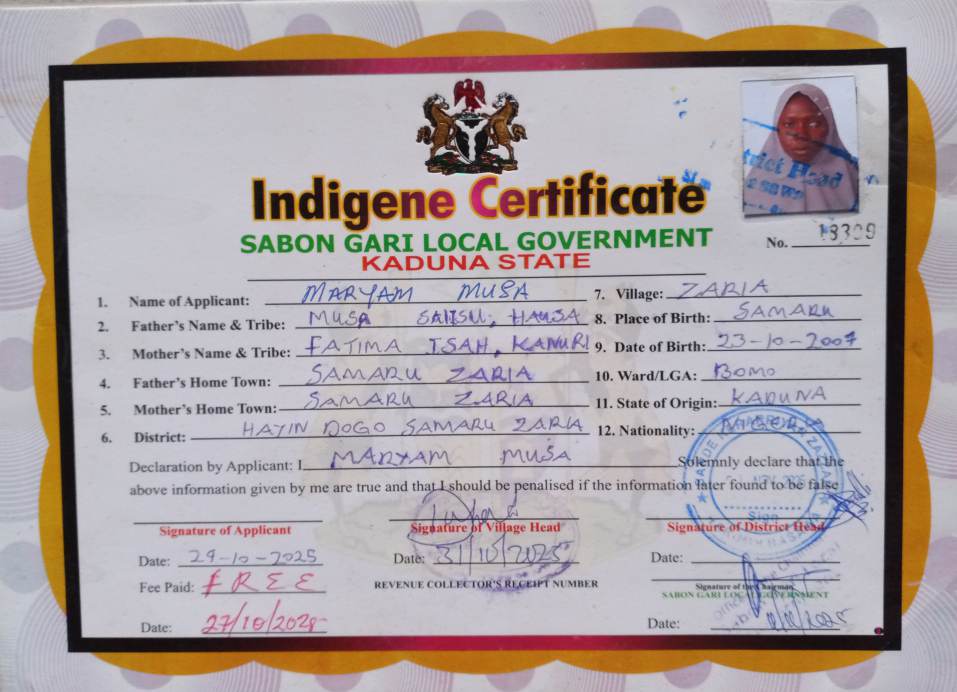 Indigene Certificate
SABON GARI LOCAL GOVERNMENT
KADUNA STATE
trict Head
No. 18309
1. Name of Applicant: MARYAM MUSA
2. Father's Name & Tribe: MUSA SAIISU, HAUSA
3. Mother's Name & Tribe: FATIMA ISAH, KANURI
4. Father's Home Town: SAMARU ZARIA
5. Mother's Home Town: SAMARU ZARIA
6. District: HAYIN DOGO SAMARU ZARIA
7. Village: ZARIA
8. Place of Birth: SAMARU
9. Date of Birth: 23-10-2007
10. Ward/LGA: BOMO
11. State of Origin: KADUNA
12. Nationality: NIGERIA
Declaration by Applicant: I MARYAM MUSA Solemnly declare that the
above information given by me are true and that I should be penalised if the information later found to be false
Signature of Applicant
Signature of Village Head
Signature of District Head
Sign
Date: 29-10-2025
Date: 31/10/2025
Date:
Fee Paid: FREE
REVENUE COLLECTOR'S RECEIPT NUMBER
Signature of the Chairman
SABON GARI LOCAL GOVERNMENT
Date: 27/10/2025
Date: